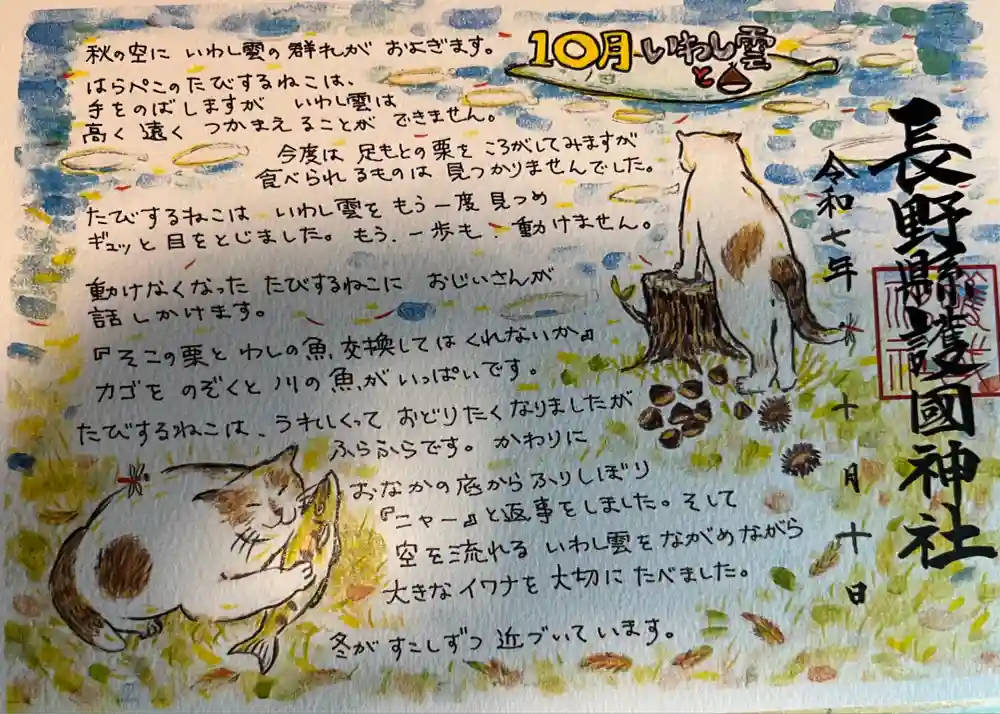 10月 いわし雲
と
長野縣護國神社
令和七年 十月十日
秋の空に いわし雲の群れが およぎます。
はらぺこのたびするねこは、
手をのばしますが いわし雲は
高く 遠く つかまえることが できません。
今度は 足もとの栗を ころがしてみますが
食べられるものは 見つかりませんでした。
たびするねこは いわし雲を もう一度 見つめ
ギュッと 目をとじました。もう、一歩も、動けません。
動けなくなった たびするねこに おじいさんが
話しかけます。
『そこの栗と わしの魚、交換してはくれないか』
カゴを のぞくと 川の魚がいっぱいです。
たびするねこは、うれしくって おどりたくなりましたが
ふらふらです。かわりに
おなかの底からふりしぼり
『ニャー』と返事をしました。そして
空を流れる いわし雲をながめながら
大きなイワナを 大切に たべました。
冬が すこしずつ 近づいています。